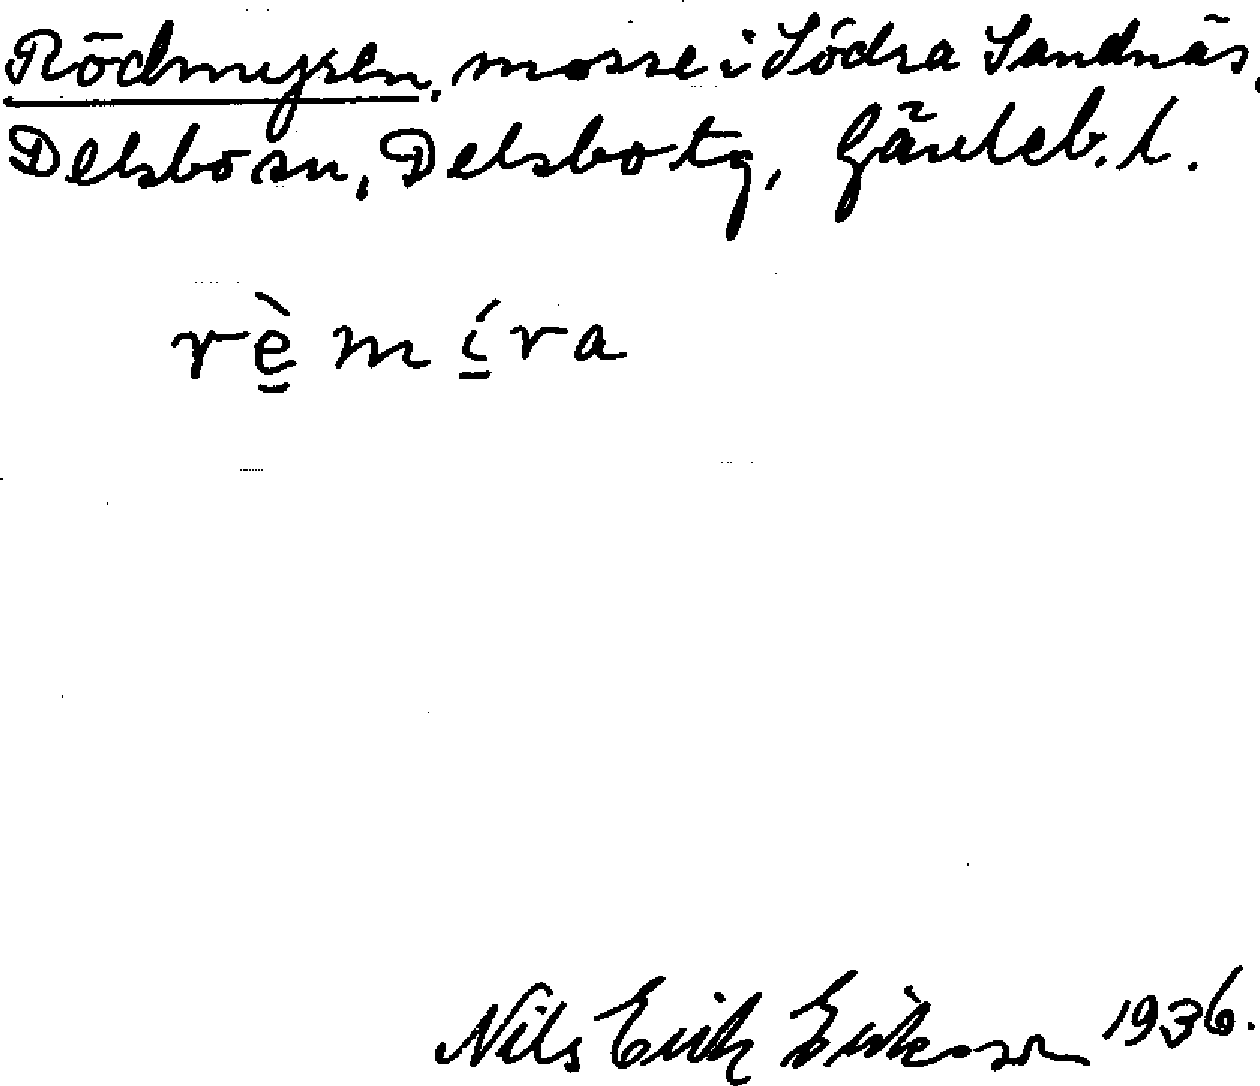 Rödmyren, mosse i Södra Sandnäs,
Delsbo sn, Delsbo tg, Gävleb. l.
rè̱ mí̱ra
Nils Erik Eriksson 1936.